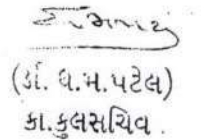 (ડૉ. ધ.મ.પટેલ)
કા.કુલસચિવ